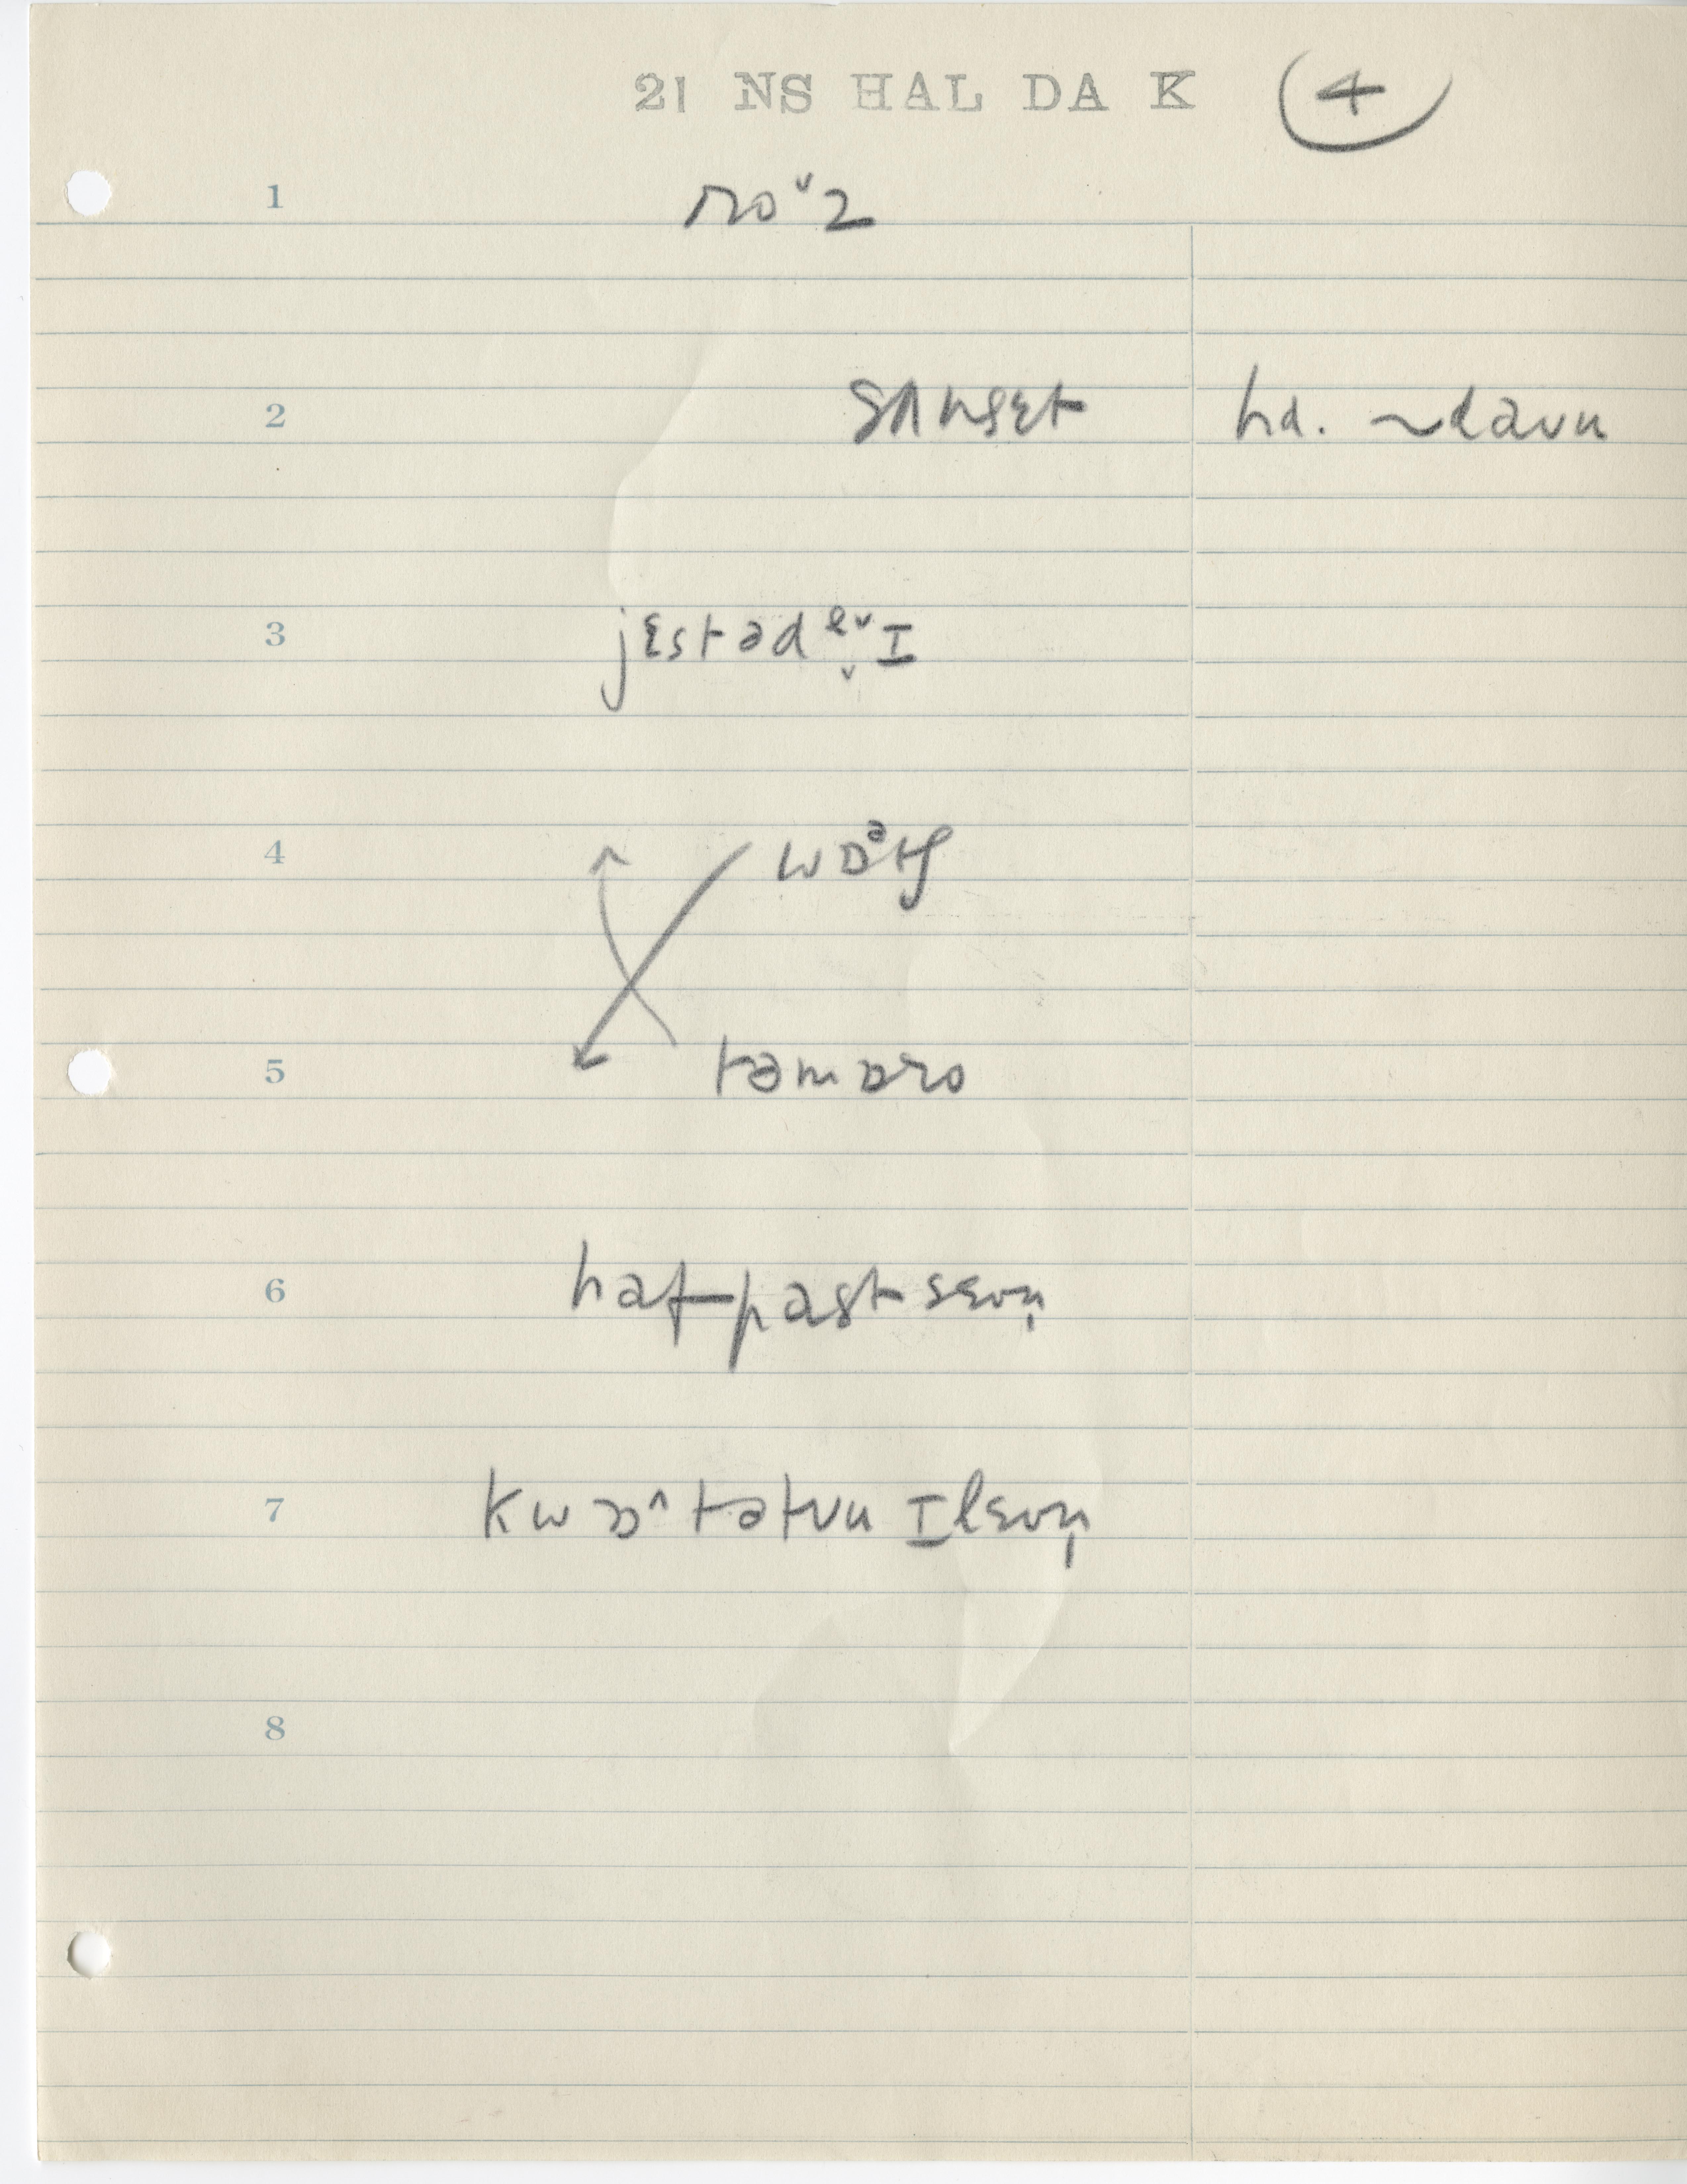 21 NS HAL DA K 4
1
2 sʌnsɛt hd. ~daʊn
3 jɛstəde˅ɪ
4 wɒᵊtʃ
5 təmɒro
6 hafpastsɛvn̩
7 kwɒ^tətʊuɪlɛvn̩
8